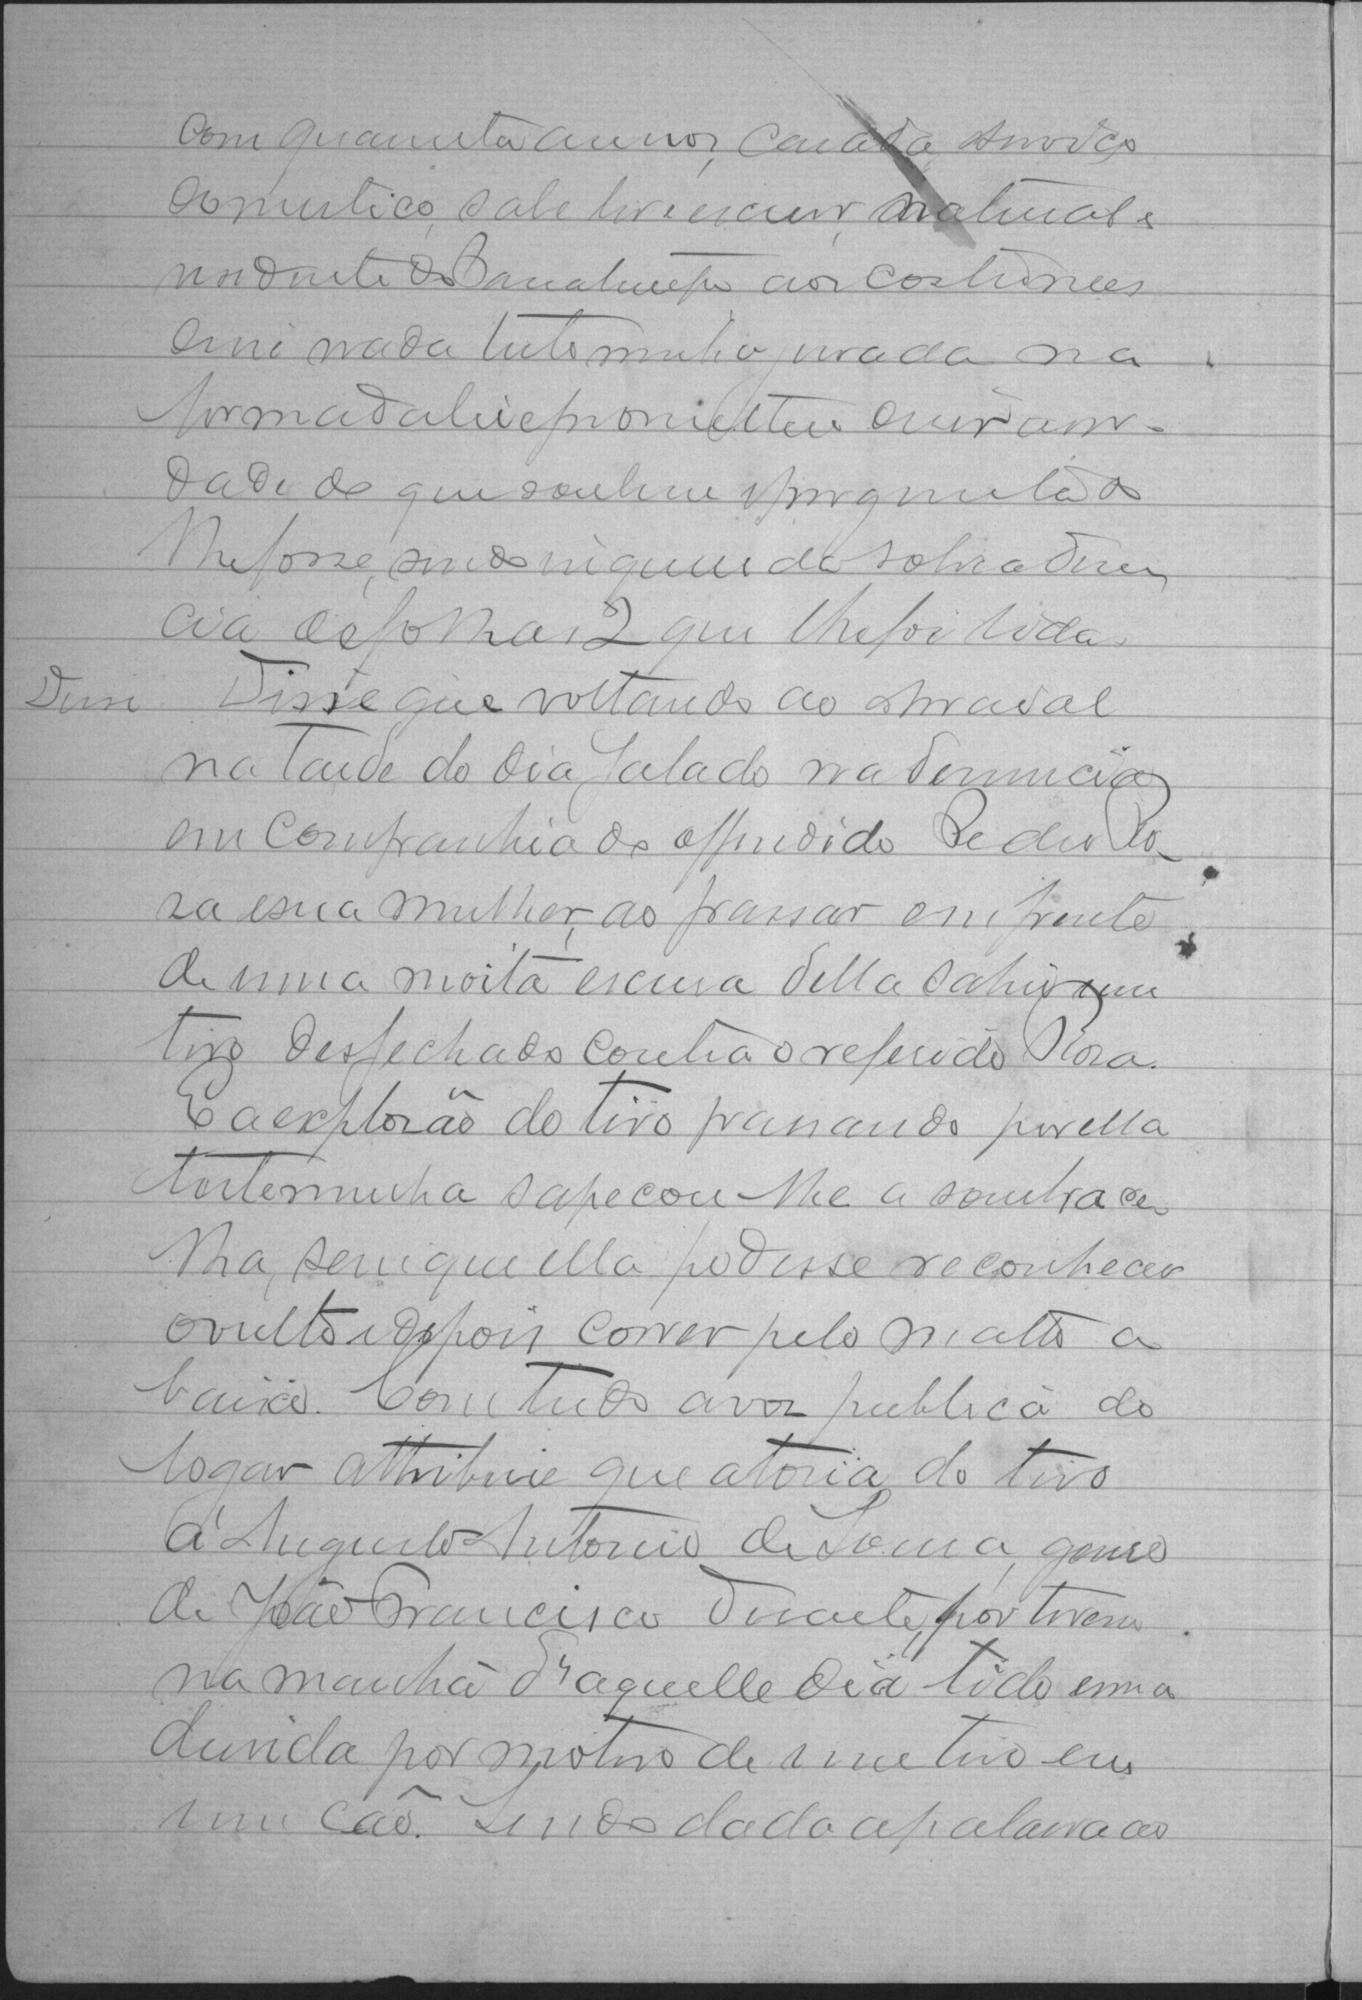 com quarenta annos, casada, serviço
domestico, sabe ler e escrever, natural e
residente do aos costumes
disse nada testemunha jurada na
forma da lei e prometteu dizer a ver-
dade do que soubesse e perguntado
lhe fosse, sendo inquerida sobre a denun
cia de folhas 2 que lhe foi lida.
Disse Disse que voltando ao arraial
na tarde do dia falado na denuncia
em companhia do offendido Pedro Ro-
sa e sua mulher, ao passar em frente
de uma moita escura della sahio um
tiro desfechado contra o referido Rosa.
E a explozão do tiro passando por ella
testemunha sapecou-lhe a sombrace
lha, sem que ella podesse reconhecer
o vulto e depois correr pelo matto a
baixo. Com tudo a voz publica do
logar attribue que atoria do tiro
á Augusto Antonio de Souza, genro
de João Francisco Duarte, por terem
na manhã d'aquelle dia tido uma
duvida por motivo de um tiro em
um cão. Sendo dada a palavra ao